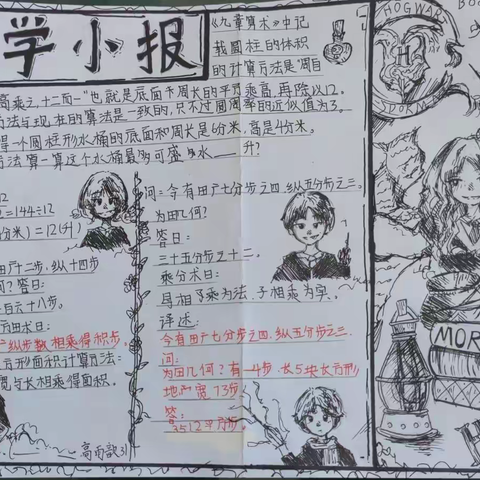 学小报
《九章算术》中记
载圆柱的体积
的计算方法是"周自
高乘之,十二而一"也就是底面周长的平方乘高,再除以12。
方法与现在的算法是一致的,只不过圆周率的近似值为3。
得一个圆柱形水桶的底面和周长是6分米,高是4分米。
方法算一算这个水桶最多可盛多水___升?
12
2=144÷12
分米)=12(升)
田广十二步,纵十四步
何?答曰:
百六十八步。
方田术曰:
广纵步数相乘得积步。
方形面积计算方法:
宽与长相乘得面积。
问:今有田广七分步之四,纵五分步之三,
为田几何?
答曰:
三十五分步之十二。
乘分术曰:
母相乘为法,子相乘为实。
详述:
今有田广七分步之四,纵五分步之三
问:
为田几何?有一
长方形
地
宽
答:
HOGWAR
H
MOR